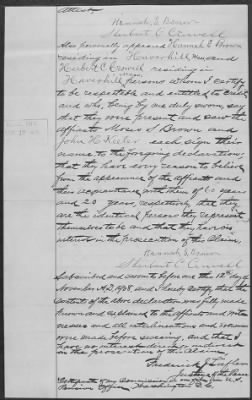 Attest:
Hannah E Brown
Herbert C Crowell
Also personally appeared Hannah E Brown
residing in Haverhill Mass and
Herbert C Crowell residing in
Haverhill persons whom I certify
to be respectable and entitled to credit
and who, being by me duly sworn, say
that they were present and saw the
affiants Moses S Brown and
John H Keefer each sign their
name to the foregoing declaration,
that they have every reason to believe
from the appearance of the affiants and
their acquaintance with them of 60 years
and 20 years, respectively that they
are the identical persons they represent
themselves to be and that they have no
interest in the prosecution of this Claim.
Hannah E Brown
Herbert C Crowell
Subscribed and sworn to before me this 12th day of
November A.D. and I hereby certify that the
contents of the above declaration was fully made
known and explained to the affiants and witnesses
and all interlineations and
were made before swearing, and that I
have no interest direct or indirect
in the prosecution of this claim
Frederick J
Justice of the Peace
Certificate of my commission is on file in U.S.
Pension Office Washington D.C.